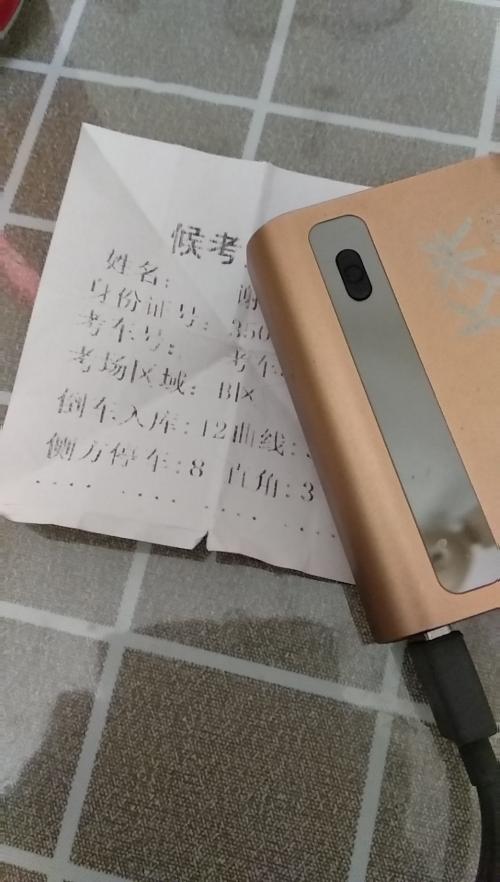 候考
姓名: 谢
身份证号: 350
考车号: 考车
考场区域: B区
倒车入库: 12 曲线:
侧方停车: 8 直角: 3